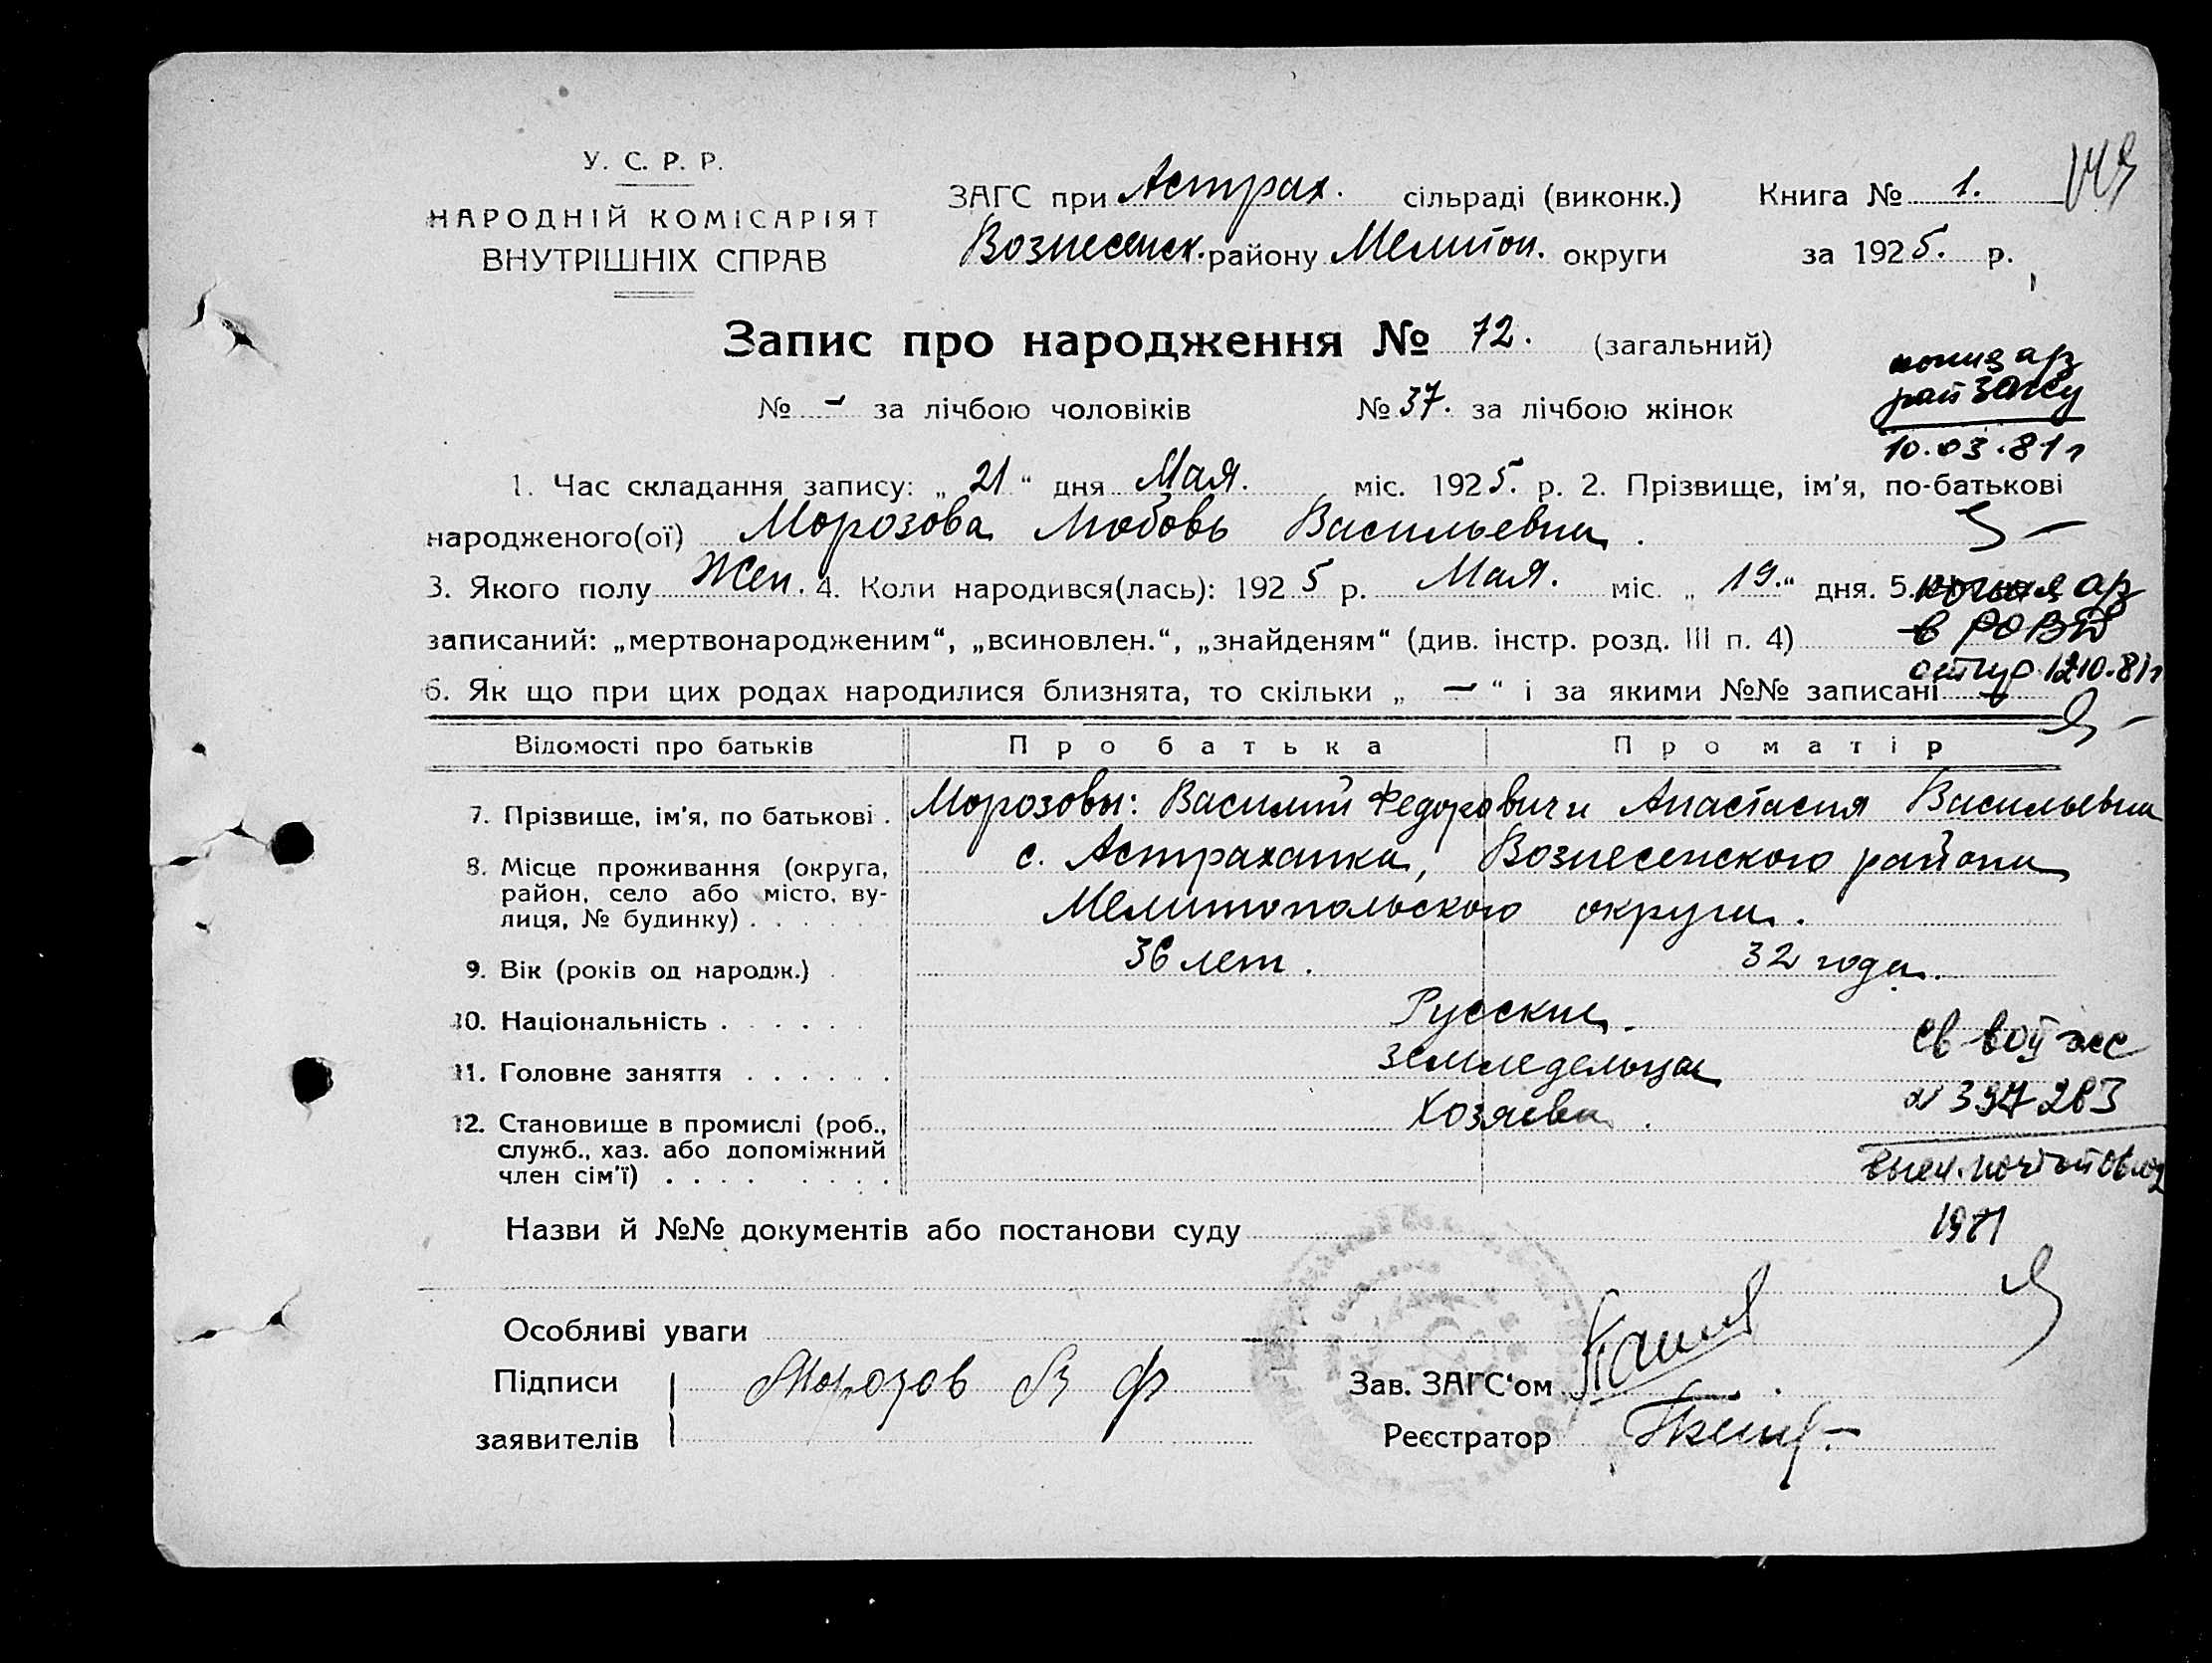 У. С. Р. Р.
НАРОДНІЙ КОМІСАРІЯТ
ВНУТРІШНІХ СПРАВ
ЗАГС при Астрах. сільраді (виконк.) Книга № 1.
Вознесенск. району Мелитоп. округи за 1925. р.
Запис про народження № 72. (загальний)
№ - за лічбою чоловіків № 37. за лічбою жінок
райзагсу
10.03.81г
1. Час складання запису: „ 21 “ дня Мая. міс. 1925. р. 2. Прізвище, ім'я, по-батькові
народженого(ої) Морозова Любовь Васильевна.
3. Якого полу Жен. 4. Коли народився(лась): 1925 р. Мая. міс. „ 19. “ дня. 5.
в РОВД
записаний: „мертвонародженим“, „всиновлен.“, „знайденям“ (див. інстр. розд. III п. 4)
6. Як що при цих родах народилися близнята, то скільки „ — “ і за якими №№ записані
Відомості про батьків Про батька Про матір
7. Прізвище, ім'я, по батькові . Морозовы: Василий Федорович и Анастасия Васильевна
8. Місце проживання (округа, район, село або місто, ву-лиця, № будинку) . . . . . с. Астраханка, Вознесенского района
Мелитопольского округа.
9. Вік (років од народж.) . 36 лет. 32 года.
10. Національність . . . . . Русские.
11. Головне заняття . . . . . . Земледельцы
12. Становище в промислі (роб., служб., хаз. або допоміжний член сім'ї) . . . . . . . . Хозяева.
Назви й №№ документів або постанови суду
Особливі уваги
Підписи Морозов В Ф Зав. ЗАГС'ом
заявителів Реєстратор